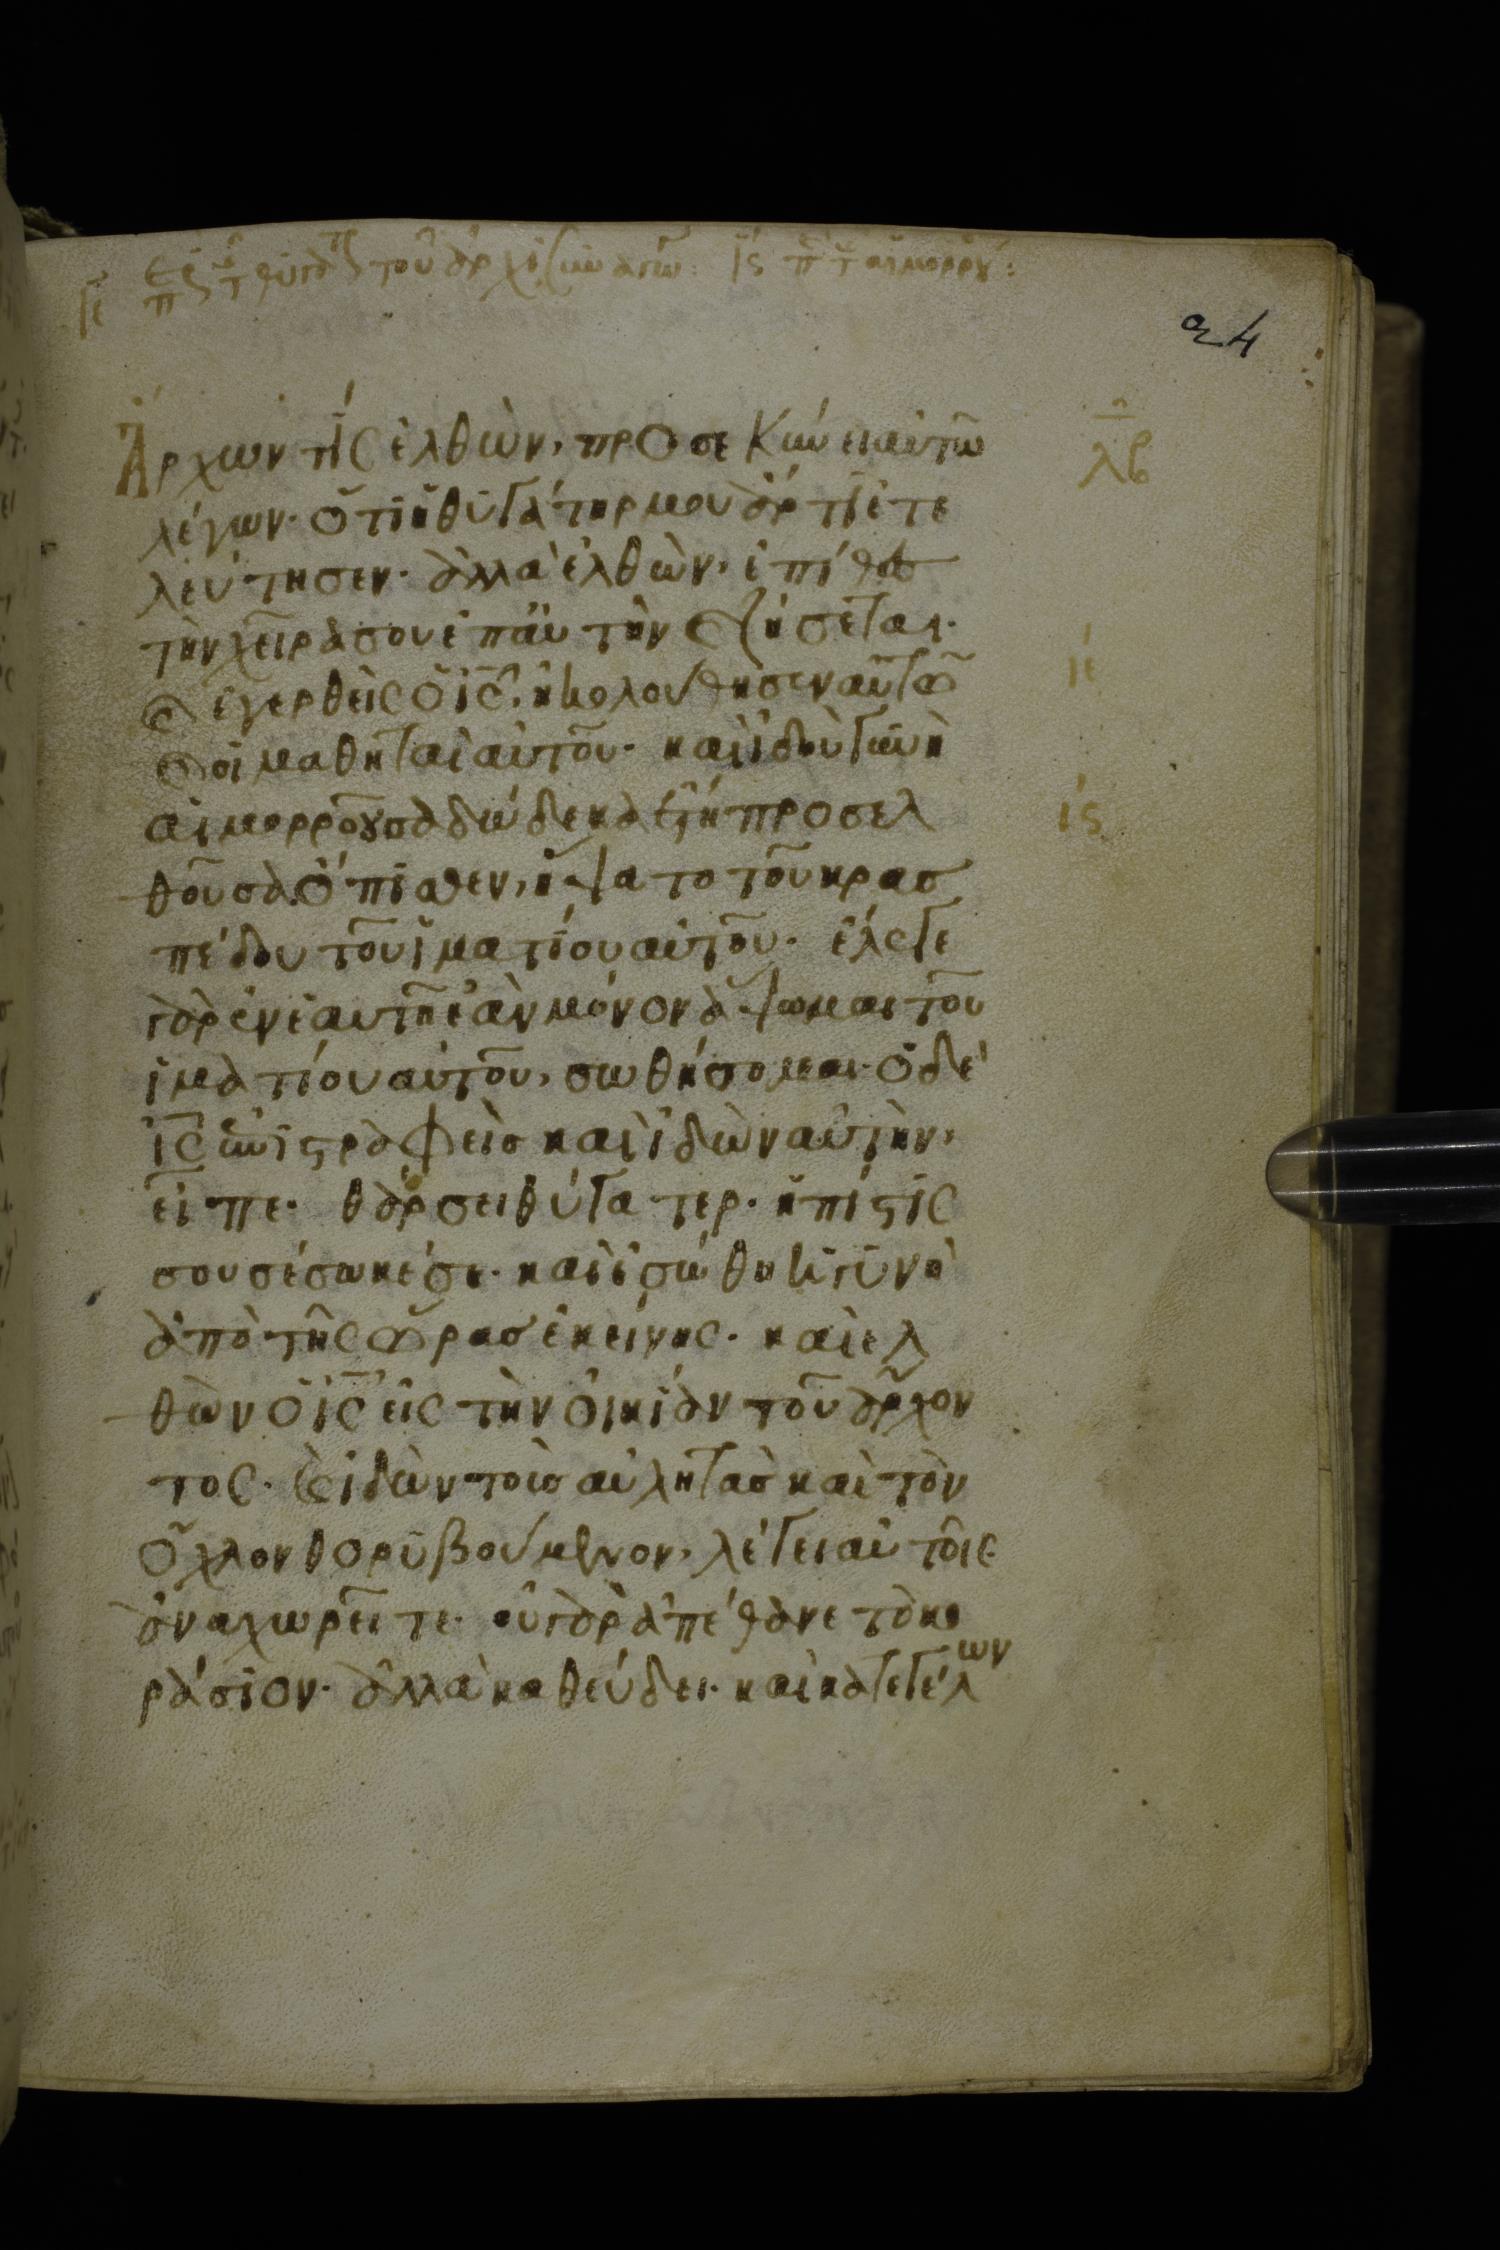 ιε περι της θυγατρος του αρχισυναγωγου: ις περι της αιμορροου:
24
Ἄρχων τὶς ἐλθὼν, προσεκύνει αὐτῶ
λβ
λέγων· ὅτι ἡ θυγάτηρ μου ἄρτι ἐτε
λεύτησεν· ἀλλα ἐλθὼν, ἐπίθες
τὴν χεῖρα σου ἐπ αὐτὴν ϗ ζήσεται·
ιε
ϗ ἐγερθεὶς ὁ ις, ἠκολούθησεν αὐτῶ
ϗ οἱ μαθηταὶ αὐτοῦ· καὶ ἰδοὺ γυνὴ
αἱμορροοῦσα δώδεκα ἔτη προσελ
ις
θοῦσα ὄπισθεν, ἥψατο τοῦ κρασ
πέδου τοῦ ἱματίου αὐτοῦ· ἔλεγε
γὰρ ἐν ἑαυτῆ ἐὰν μόνον ἅψωμαι τοῦ
ἱματίου αὐτοῦ, σωθήσομαι· ὁ δὲ
ις ἐπιστραφεὶς καὶ ἰδὼν αὐτὴν,
εἶπε· θάρσει θύγατερ· ἡ πίστις
σου σέσωκέ σε· καὶ ἐσώθη ἡ γυνὴ
ἀπὸ τῆς ὥρας ἐκείνης· καὶ ελ
θὼν ὁ ις εἰς τὴν οἰκίαν τοῦ ἄρχον
τος· ϗ ἰδὼν τοὺς αὐλητὰς καὶ τὸν
ὄχλον θορυβούμενον, λέγει αὐτοῖς
ἀναχωρεῖτε· οὐ γὰρ ἀπέθανε τὸ κο
ράσιον· ἀλλὰ καθεύδει· καὶ κατεγέλων